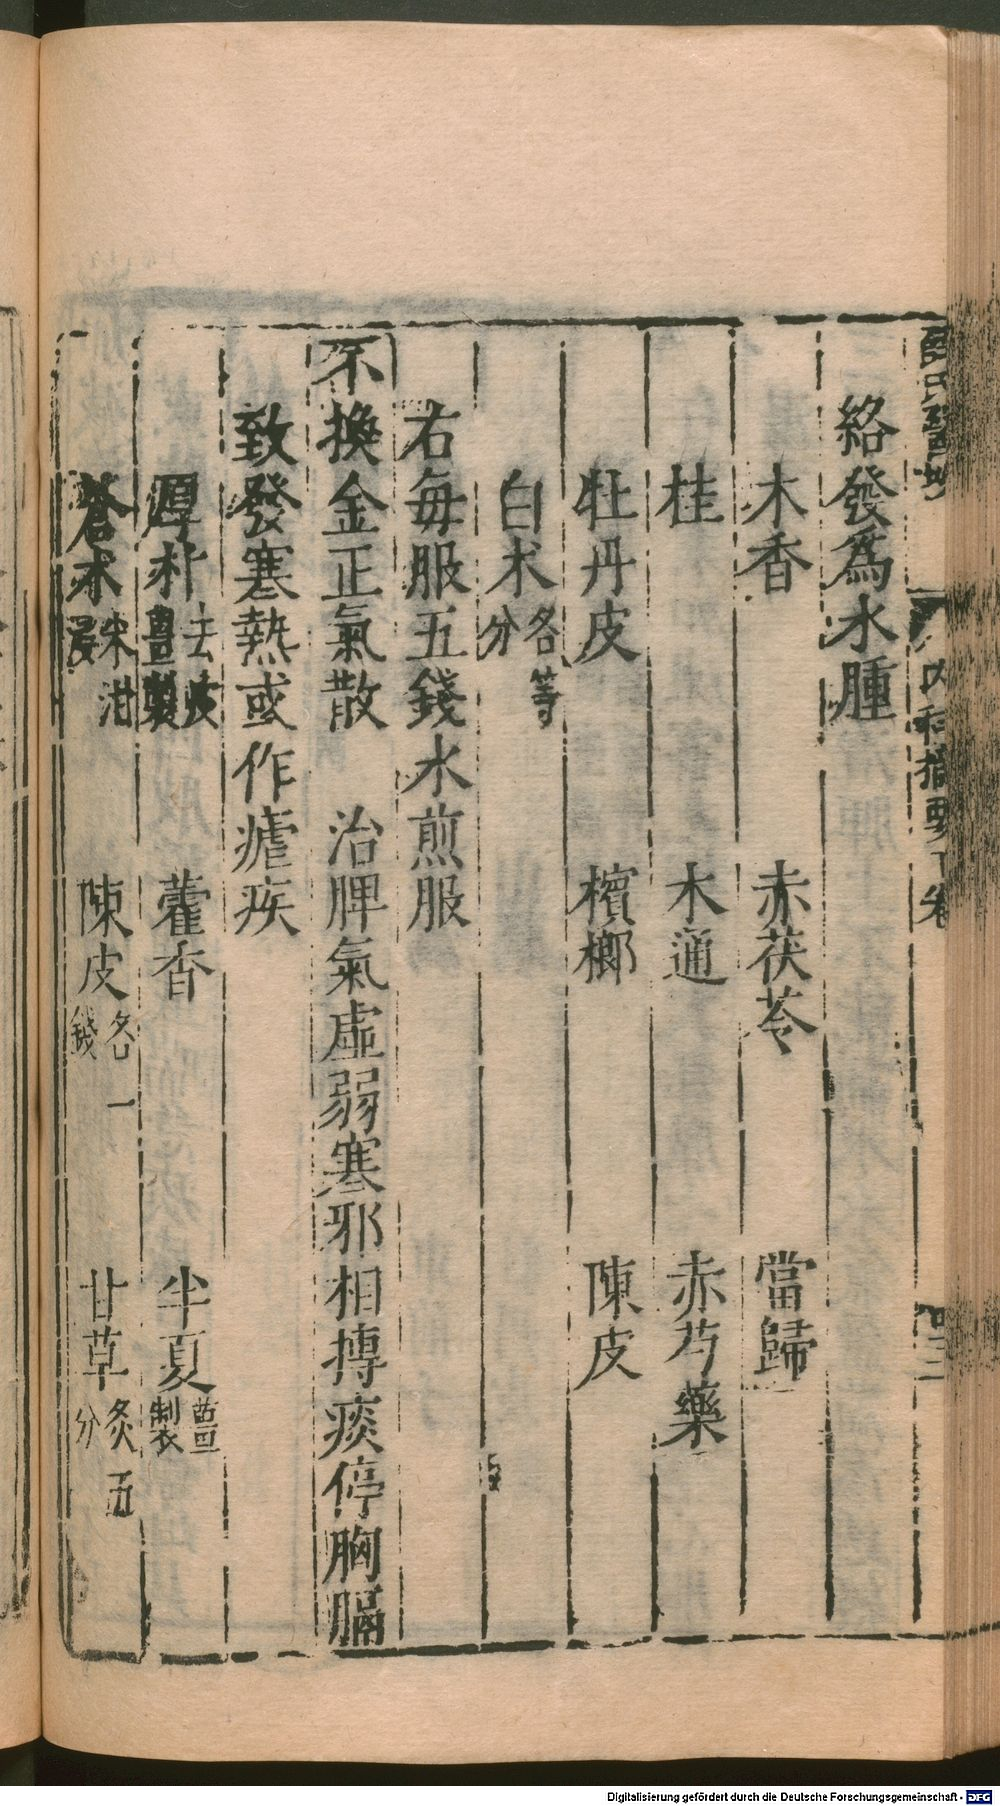 內科摘要下卷
絡發爲水腫
木香 赤茯苓 當歸
桂 木通 赤芍藥
牡丹皮 檳榔 陳皮
白朮各等分
右每服五錢水煎服
不換金正氣散 治脾氣虛弱寒邪相搏痰停胸膈
致發寒熱或作瘧疾
厚朴去皮薑製 藿香 半夏薑製
蒼朮米泔浸 陳皮各一錢 甘草炙五分
Digitalisierung gefördert durch die Deutsche Forschungsgemeinschaft - DFG